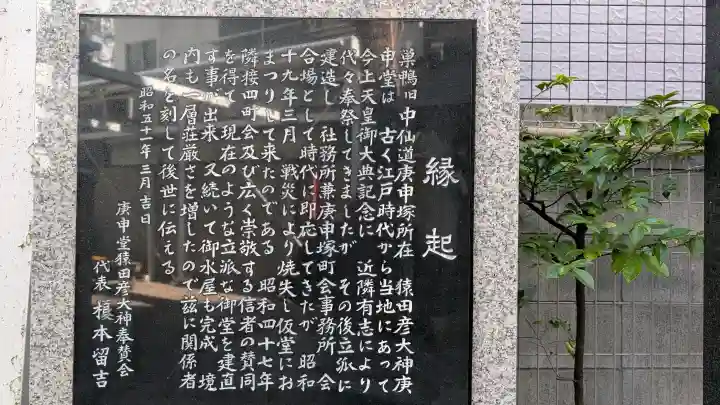 縁起
巣鴨旧中仙道庚申塚所在 猿田彦大神庚
申堂は 古く江戸時代から当地にあって
今上天皇御大典記念に 近隣有志により
代々奉祭してきましたが その後立派に
建造し 社務所兼庚申塚町会事務所 会
合場として時代に即応してきたが 昭和
十九年三月 戦災により焼失し仮堂にお
まつりして来たのである 昭和四十七年
隣接四町会及び広く崇敬する信者の賛同
を得て 現在のような立派な御堂を建直
す事が出来 又続いて御水屋も完成 境
内も一層荘厳さを増したので茲に関係者
の名を刻して後世に伝える
昭和五十一年三月吉日
庚申堂猿田彦大神奉賛会
代表 榎本留吉